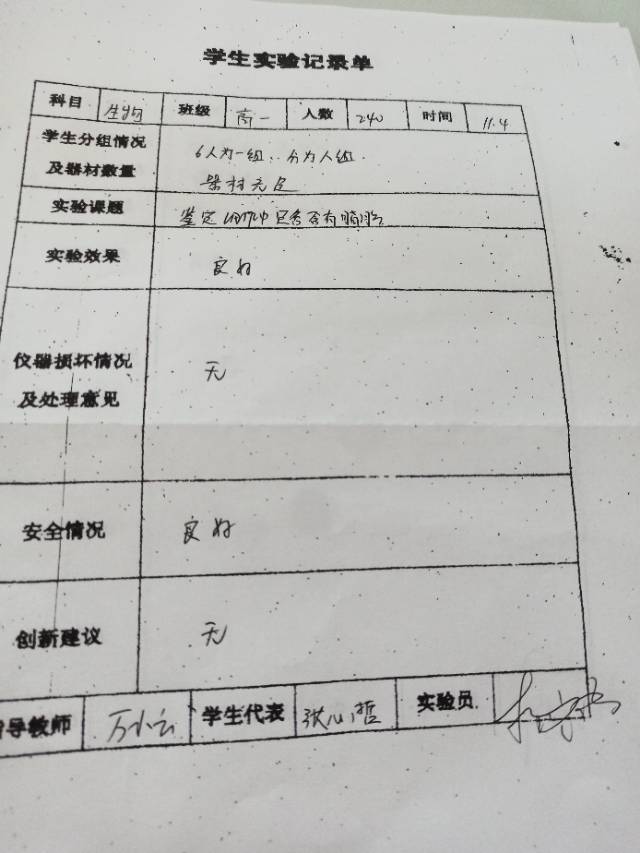 学生实验记录单
科目 生物 班级 高一 人数 240 时间 11.4
学生分组情况
及器材数量
6人为一组，分为人组.
器材充足
实验课题 鉴定 中是否含有脂肪
实验效果 良好
仪器损坏情况
及处理意见
无
安全情况 良好
创新建议 无
指导教师 万小云 学生代表 张心哲 实验员